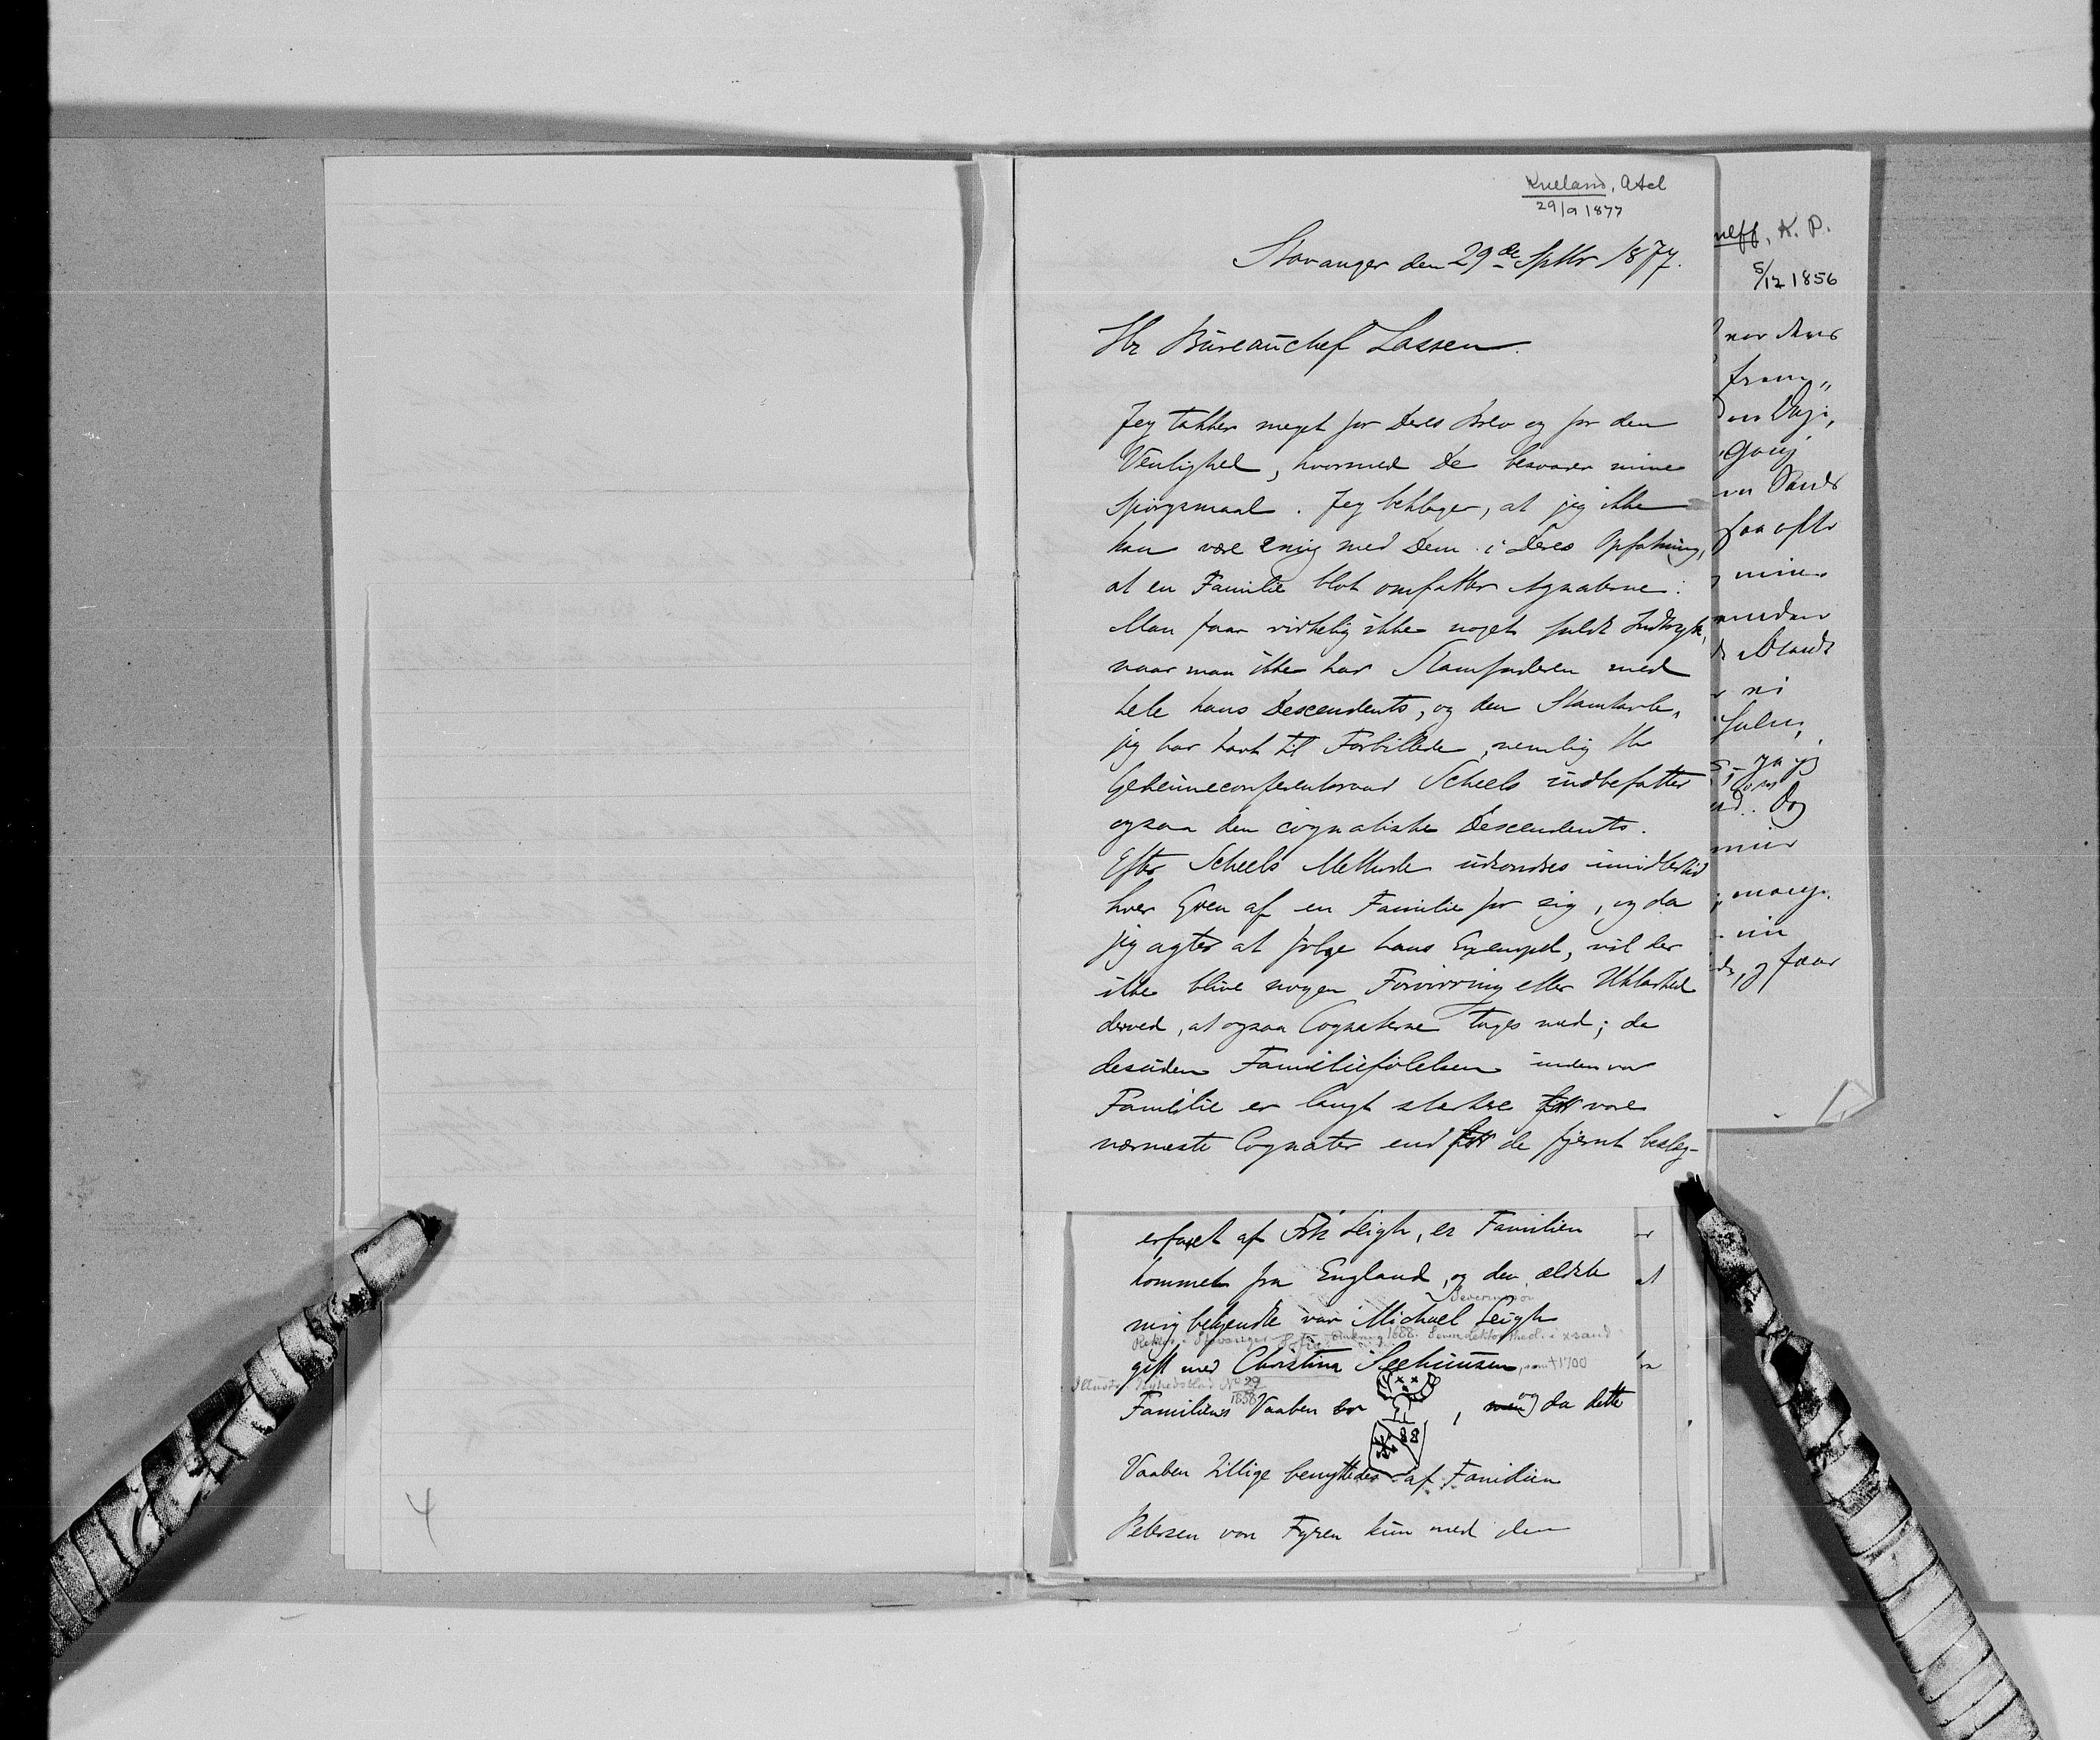 Kielland, Axel
29/9 1877
Stavanger den 29de Septbr 1877.
Hr Büreaüchef Lassen.
Jeg takker meget for Deres Brev og for den
Venlighed, hvormed De besvarer mine
Spörgsmaal. Jeg beklager, at jeg ikke
kan være enig med Dem i Deres Opfatning,
at en Familie blot omfatter Agnaterne.
Man faar virkelig ikke noget fuldt Indtryk,
naar man ikke har Stamfaderen med
hele hans Descendents, og den Stamtavle,
jeg har havt til Forbillede, nemlig Hr
Geheimeconferentsraad Scheels indbefatter
ogsaa den cognatiske Descendents.
Efter Scheels Methode üdsondres imidlertid
hver Green af en Familie for sig, og da
jeg agter at fölge hans Exempel, vil der
ikke blive nogen Forvirring eller Uklarhed
derved, at ogsaa Cognaterne tages med; da
desüden Familiefölelsen inden vor
Familie er langt stærkere for vore
nærmeste Cognater end for de fjernt beslæg-
erfaret af Frk Leigh, er Familien
kommet fra England, og den ældste
mig bekjendte var Michael Leigh
gift med Christina Seehüüsen, † 1700
Illustr. Nyhedsblad No 29
1858
Familiens Vaaben er , men og da dette
88
Vaaben tillige benyttedes af Familien
Petersen von Fyren kün med den
4
neff, K. P.
5/12 1856
saa ofte
mine
Dog
faar